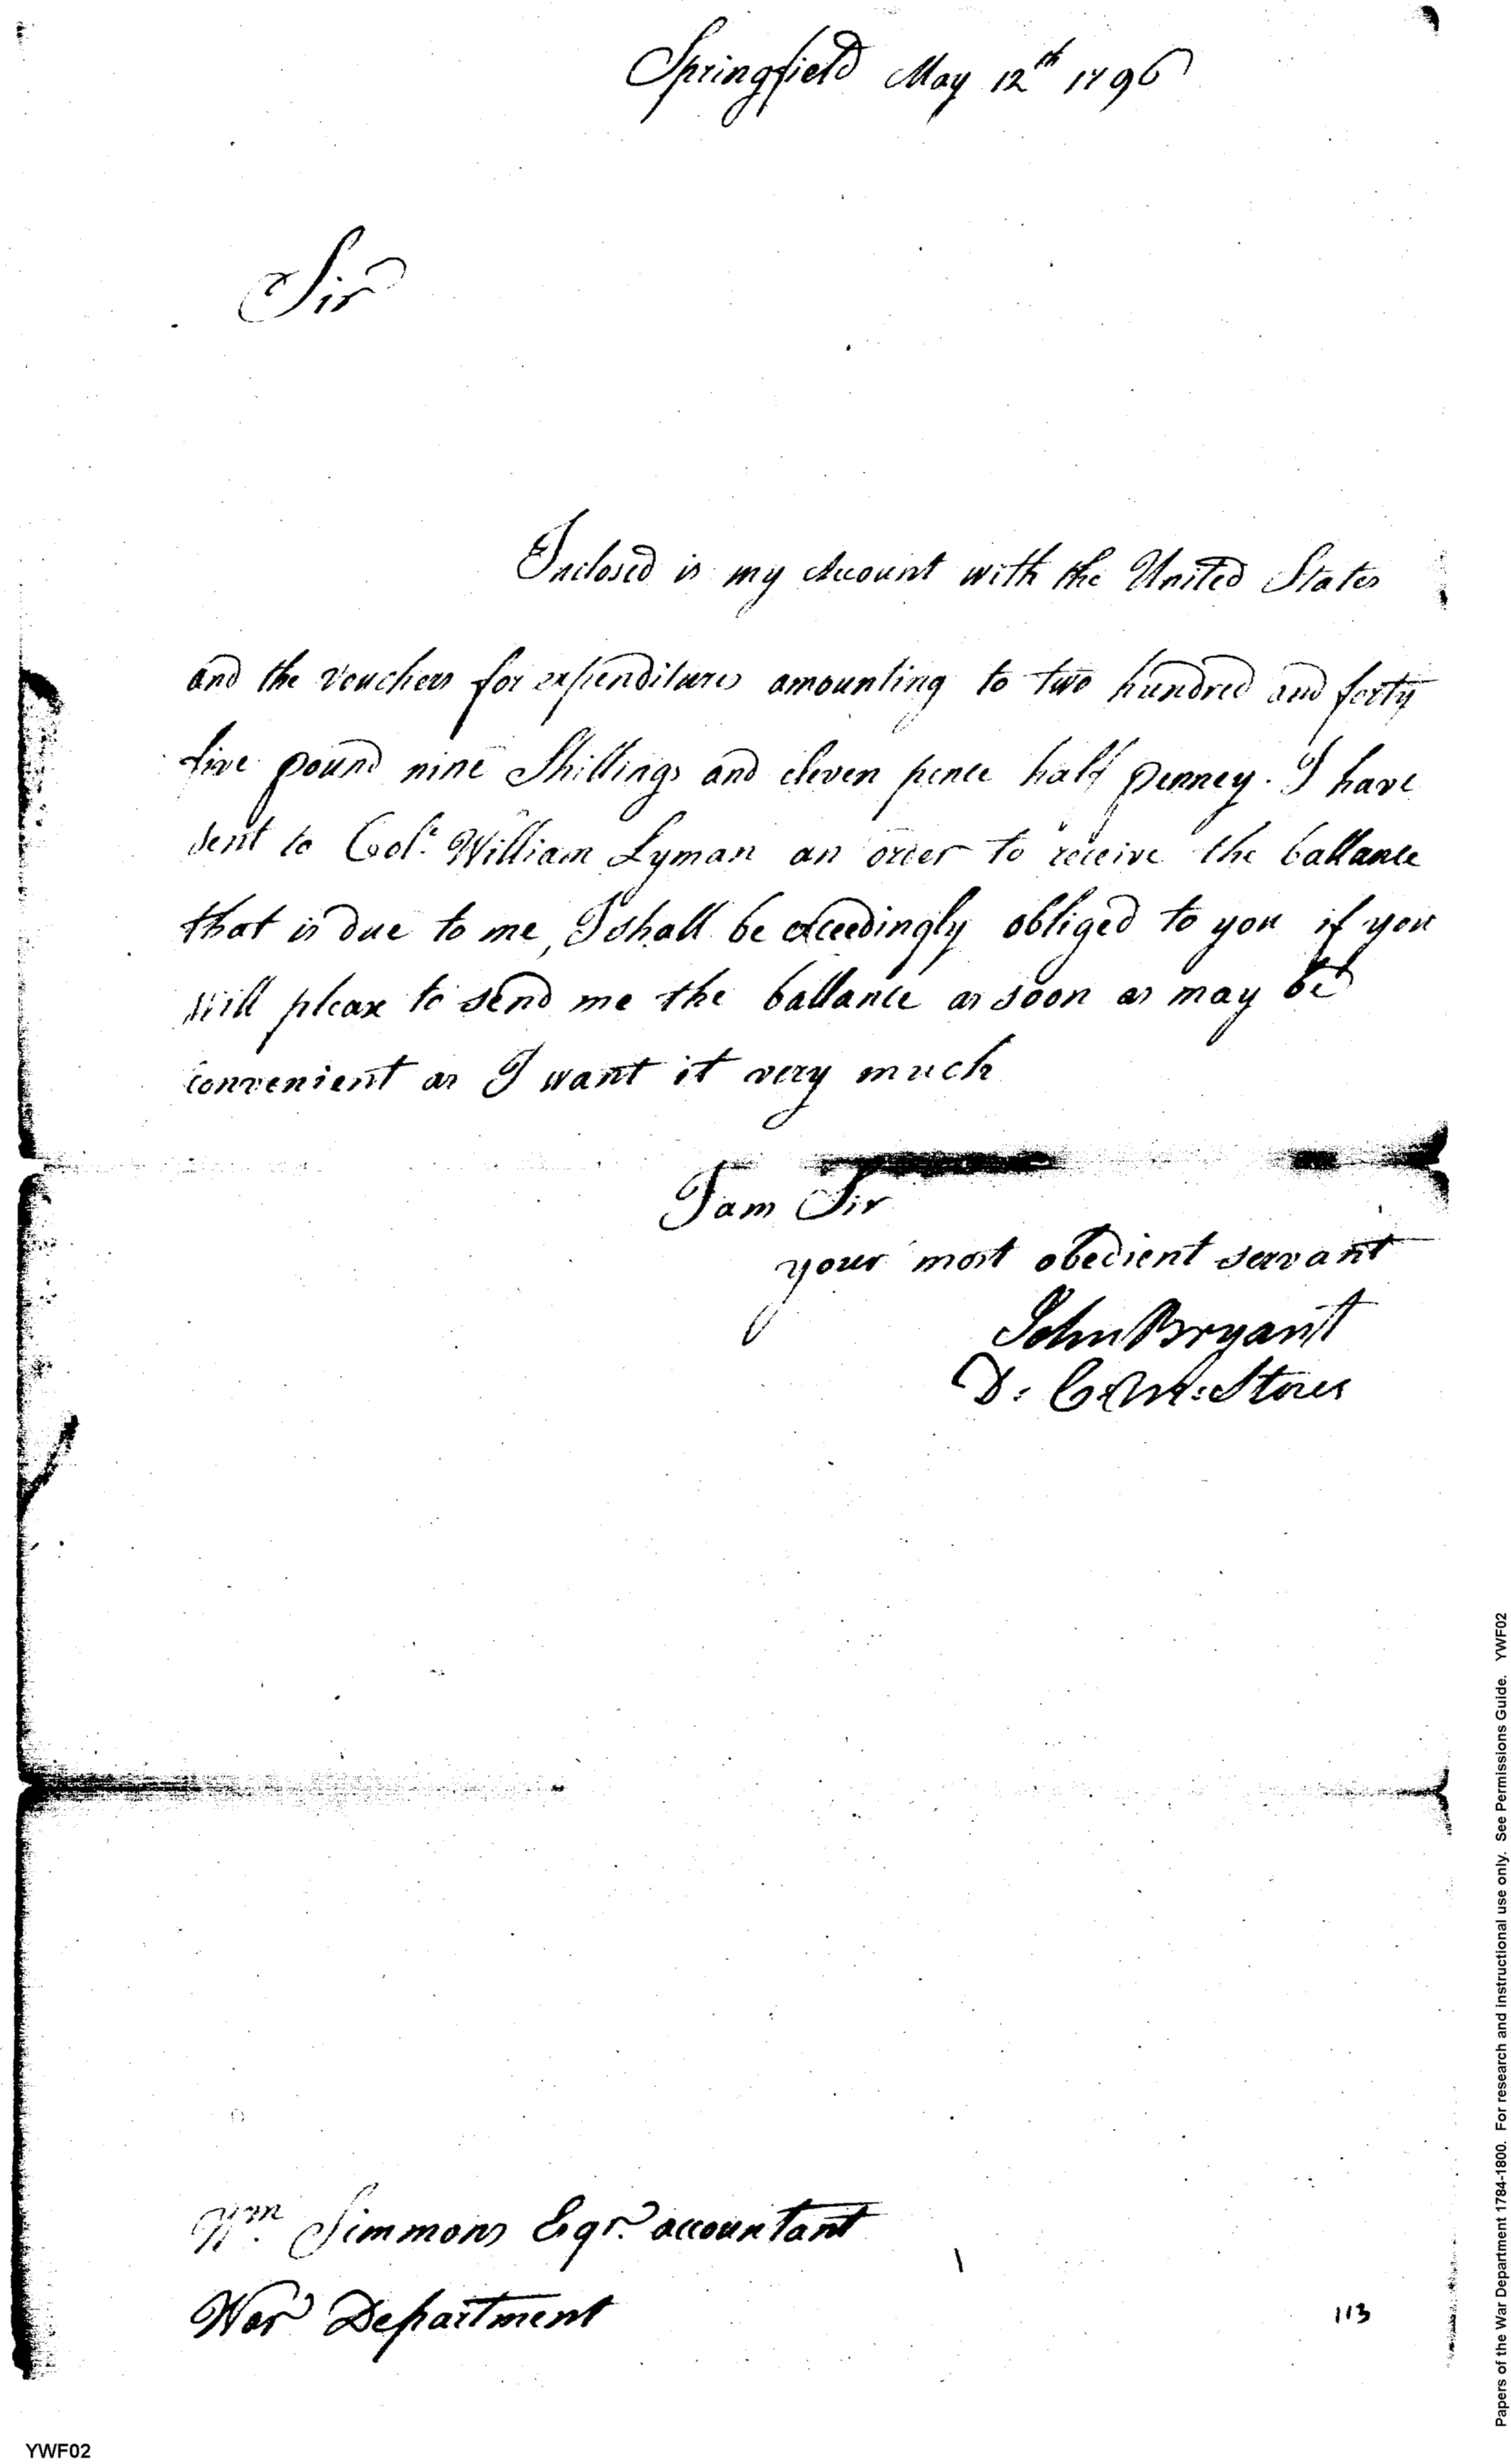 Springfield May 12th 1796
Sir
Inclosed is my Account with the United States
and the Vouchers for expenditures amounting to two hundred and forty
five pound nine Shillings and eleven pence half penney. I have
sent to Col. William Lyman an order to receive the ballance
that is due to me, I shall be exceedingly obliged to you if you
will please to send me the ballance as soon as may be
convenient as I want it very much
I am Sir
your most obedient servant
John Bryant
D: C: M: Stores
Wm. Simmons Eqr. accountant
War Department
113
YWF02
Papers of the War Department 1784-1800. For research and instructional use only. See Permissions Guide. YWF02